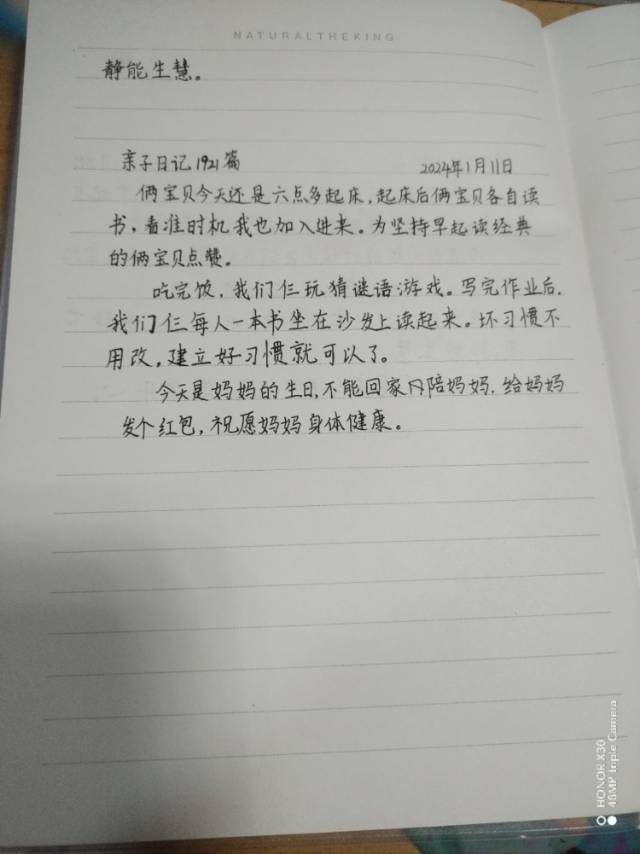 NATURALTHEKING
静能生慧。
亲子日记1921篇 2024年1月11日
俩宝贝今天还是六点多起床，起床后俩宝贝各自读
书，看准时机我也加入进来。为坚持早起读经典
的俩宝贝点赞。
吃完饭，我们仨玩猜谜语游戏。写完作业后，
我们仨每人一本书坐在沙发上读起来。坏习惯不
用改，建立好习惯就可以了。
今天是妈妈的生日，不能回家陪妈妈，给妈妈
发个红包，祝愿妈妈身体健康。
HONOR X30
48MP Triple Camera